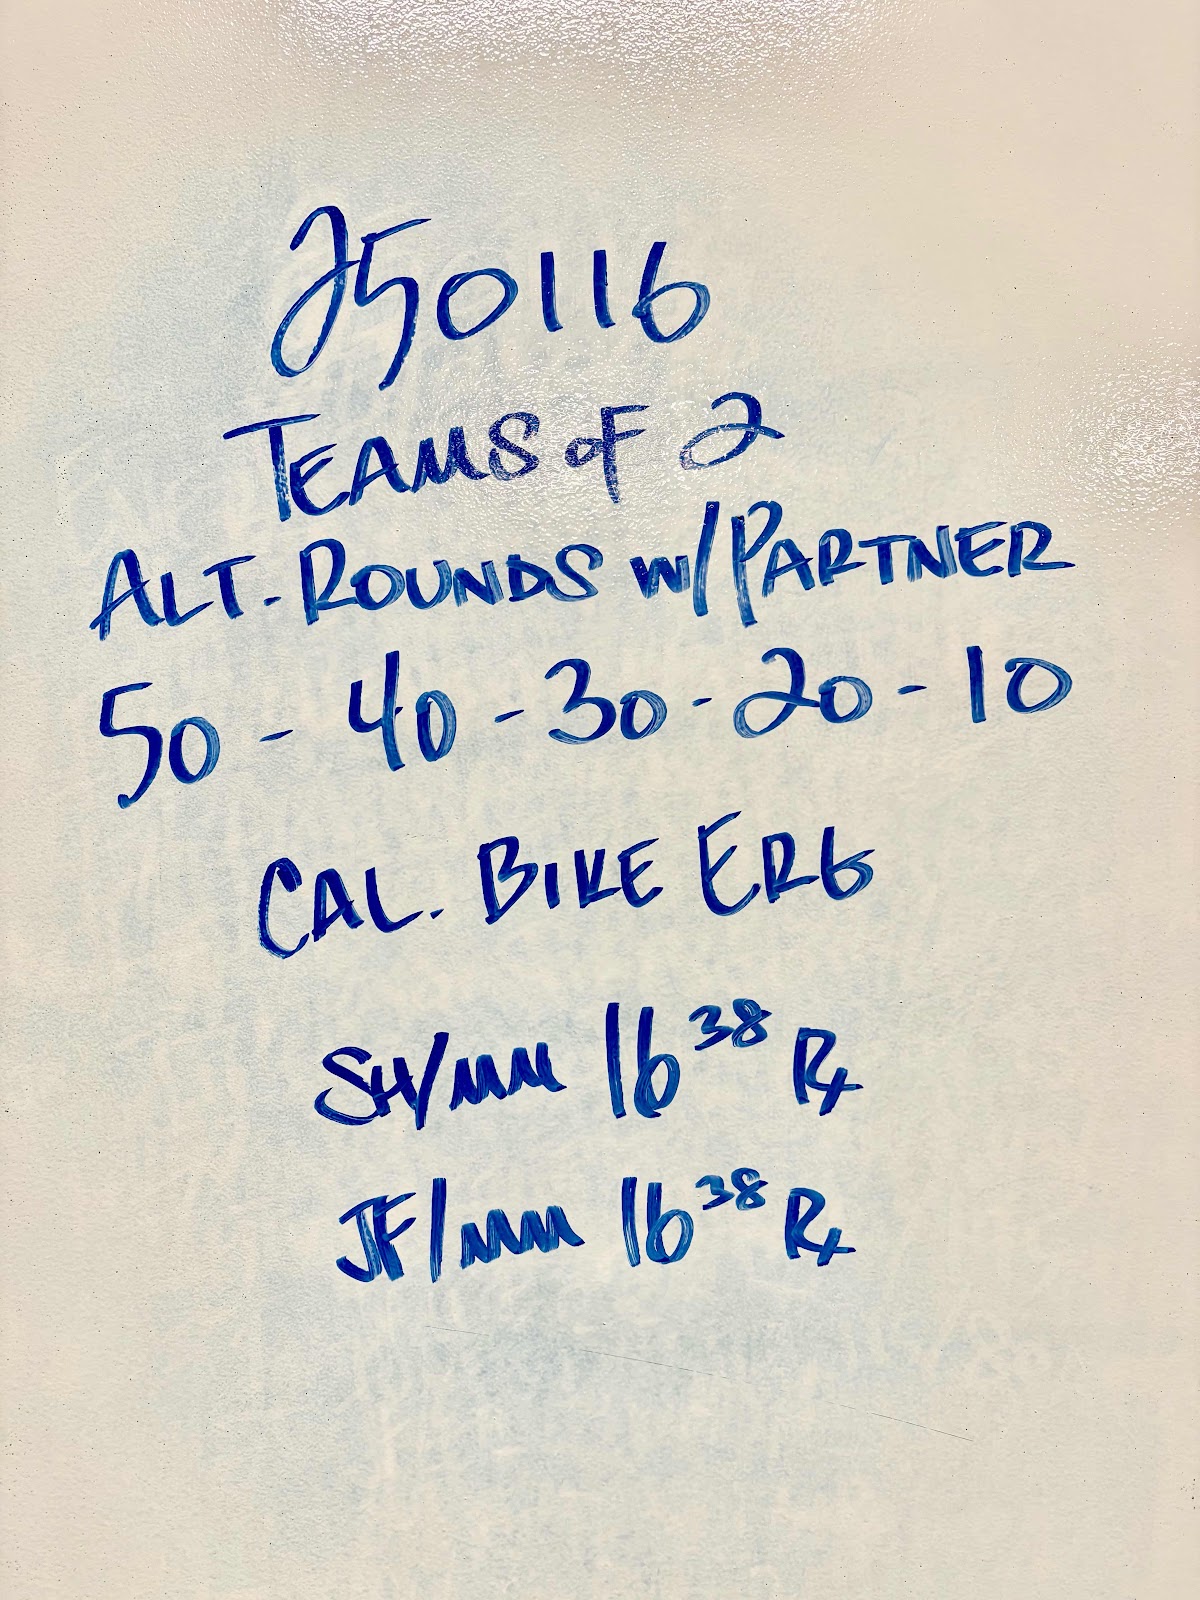 250116
TEAMS OF 2
ALT. ROUNDS W/PARTNER
50 - 40 - 30 - 20 - 10
CAL. BIKE ERG
SH/MM 16³⁸ Rx
JF/MM 16³⁸ Rx